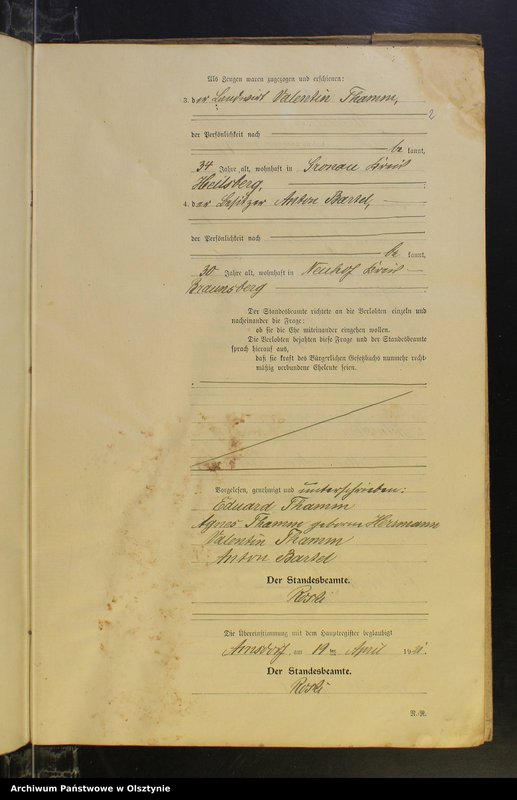 Als Zeugen waren zugezogen und erschienen:
3. der Landwirt Valentin Thamm,
2
der Persönlichkeit nach
be kannt,
34 Jahre alt, wohnhaft in Kreis
Heilsberg,
4. der Besitzer Anton Bartel,
der Persönlichkeit nach
be kannt,
30 Jahre alt, wohnhaft in Neuhof Kreis
Braunsberg
Der Standesbeamte richtete an die Verlobten einzeln und
nacheinander die Frage:
ob sie die Ehe miteinander eingehen wollen.
Die Verlobten bejahten diese Frage und der Standesbeamte
sprach hierauf aus,
daß sie kraft des Bürgerlichen Gesetzbuchs nunmehr recht-
mäßig verbundene Eheleute seien.
Vorgelesen, genehmigt und unterschrieben:
Eduard Thamm
Agnes Thamm geborene Herrmann
Valentin Thamm
Anton Bartel
Der Standesbeamte.
Die Übereinstimmung mit dem Hauptregister beglaubigt
Arnsdorf, am 19 ten April 19
Der Standesbeamte.
R.-R.
Archiwum Państwowe w Olsztynie